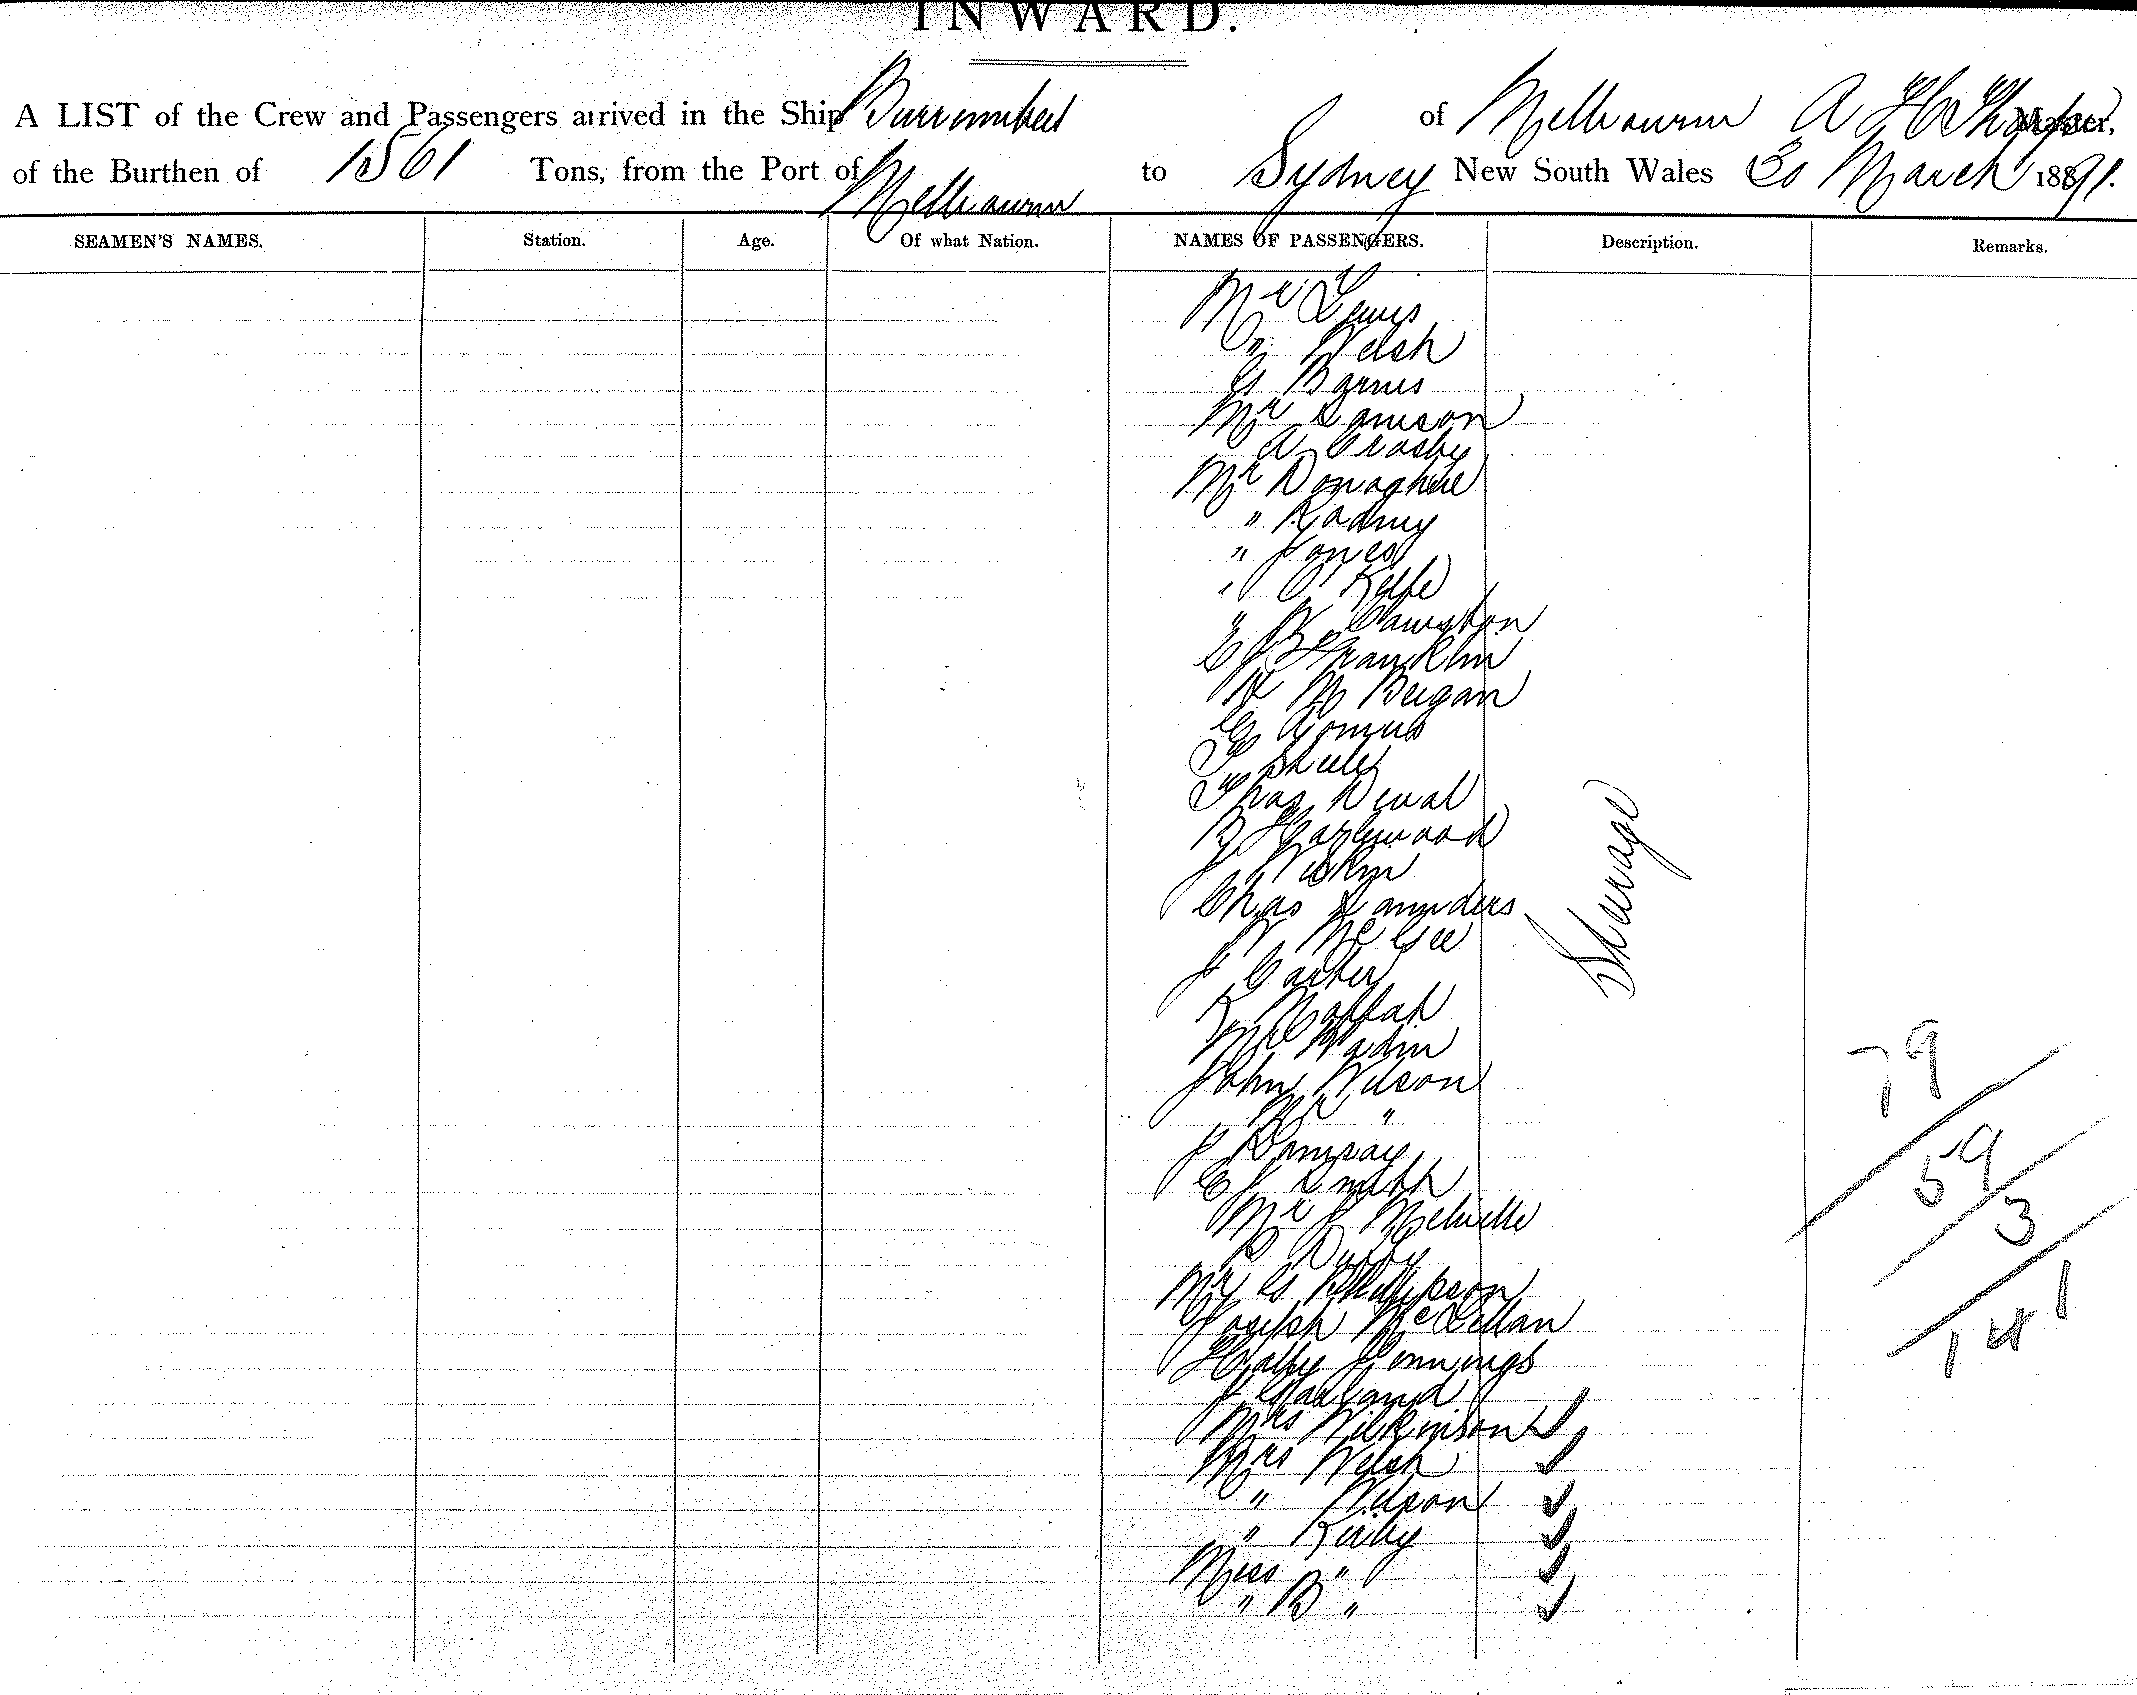 INWARD.
A LIST of the Crew and Passengers arrived in the Ship Burrumbeet of Melbourne A H Thorpe Master,
of the Burthen of 1561 Tons, from the Port of Melbourne to Sydney New South Wales 30 March 1891.
SEAMEN'S NAMES. Station. Age. Of what Nation. NAMES OF PASSENGERS. Description. Remarks.
Mr Lewis
" Welsh
G Barnes
Mr Samson
A Crosby
Mr Donaghue
" Rodney
" Jones
" O'Keefe
" W
E J Franklin
M Beegan
G
Steele
Thos Deval
R Hazlewood
J
Chas Saunders
W McGee
J Carter
R Moffat
Mr Wadin
John Wilson
Mr "
J Ramsay
E J Smith
Mr J Melville
D Duffy
Mr G Phillipson
Joseph McLellan
Hattie Jennings
J Garland
Mrs Wilkinson
Mrs Welsh
" Wilson
" Kirby
Miss "
" B "
Steerage
79
59
3
141